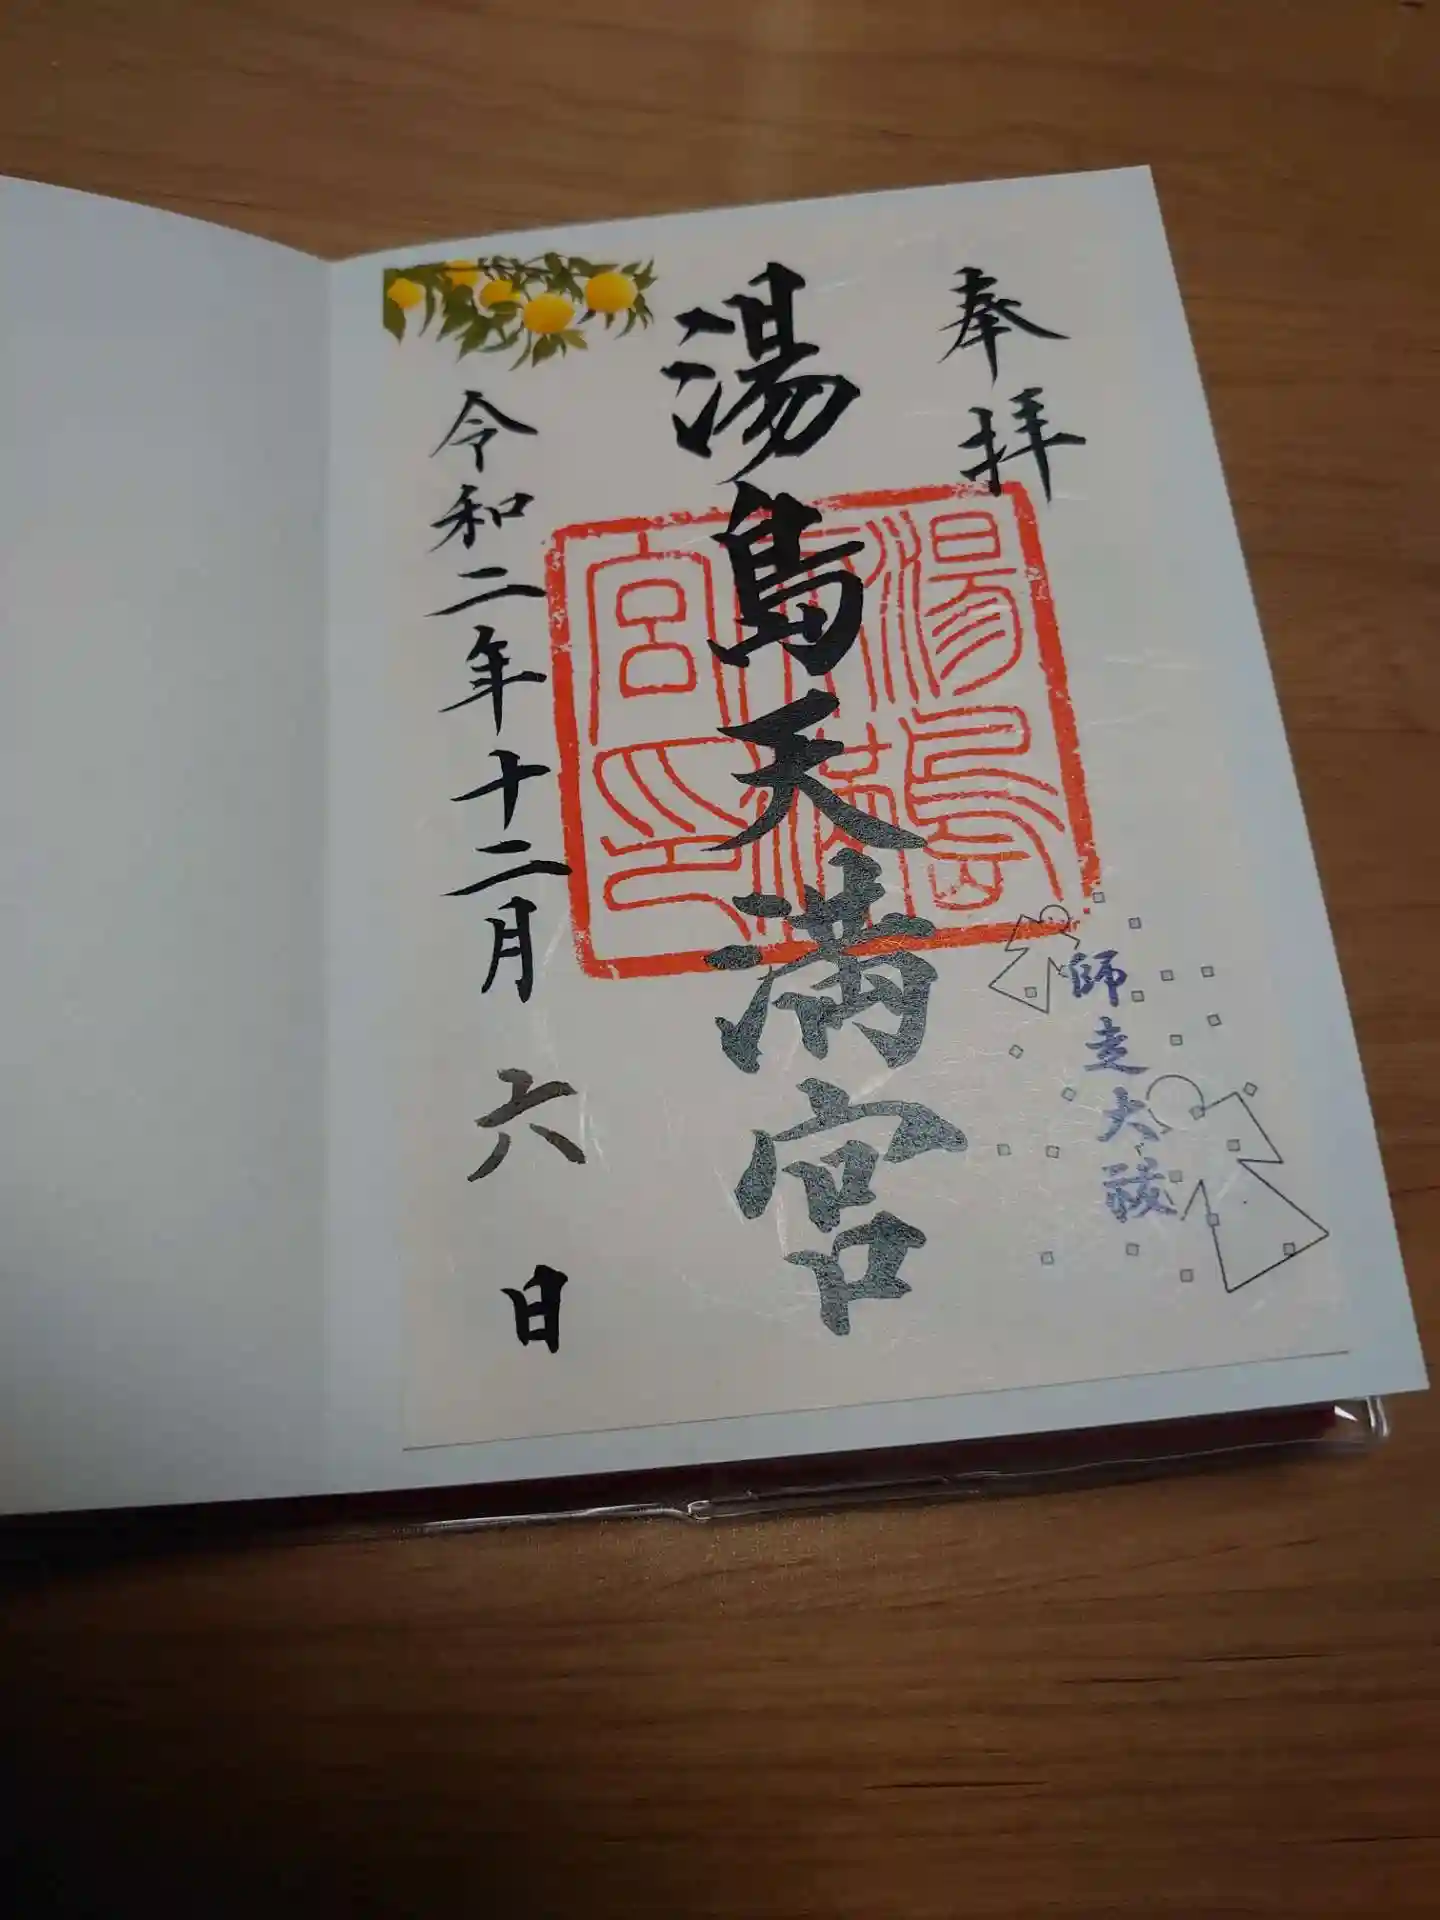 奉拝
湯島天満宮
湯島
天満
宮印
師走大祓
令和二年十二月六日